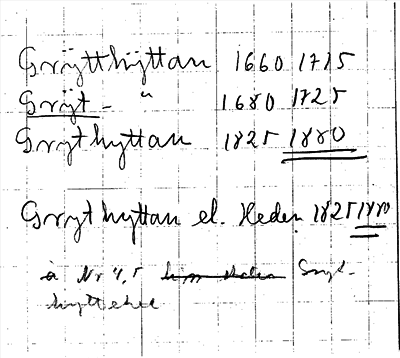 Grÿtthÿttan 1660 1715
Grÿt - " 1680 1725
Grythyttan 1825 1880
Grythyttan el. Heden 1825 1880
à Nr 4,5 Gryt-